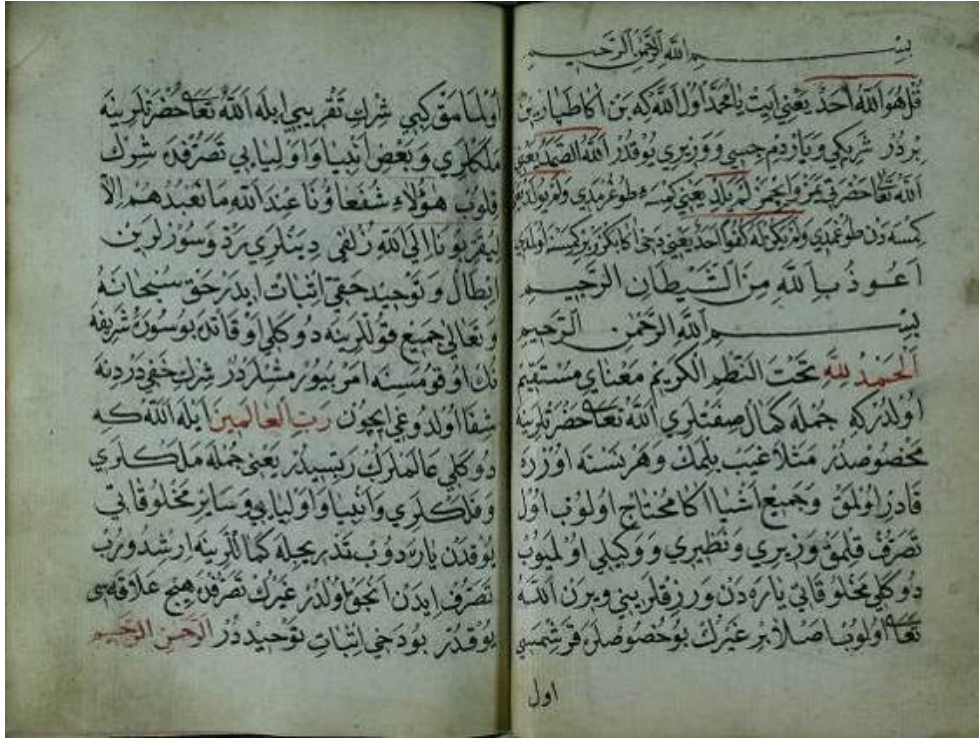 بِسْمِ اللّٰهِ الرَّحْمٰنِ الرَّحِيمِ
قُلْ هُوَ اللّٰهُ اَحَدٌ يعنى ايت يا محمد اول الله كه بن اكا طپارين
بردر شريكى و ياردمجيسى و وزيرى يوقدر اللّٰه الصمد يعنى
اللّٰه تعا حضرتى يمز و ايچمز لم يلد يعنى كمسه طوغرمدى و لم يولد
كمسه دن طوغمدى و لم يكن له كفوا احد يعنى دخى اكا بكزر بر كمسنه اولمدى
اعوذ باللّٰه من الشيطان الرجيم
بسم اللّٰه الرحمن الرحيم
الحمد للّٰه تحت النظم الكريم معناى مستقيم
اولدركه جمله كمال صفتلرى اللّٰه تعا حضرتلرينه
مخصوصدر مثلا غيب بلمك و هر نسنه اوزره
قادر اولمق و جميع اشيا اكا محتاج اولوب اول
تصرف قلمق وزيرى و نظيرى و وكيلى اولميوب
دوكلى مخلوقاتى ياره دن و رزقلرينى ويرن اللّٰه
تعا اولوب اصلا بر غيرك بو خصوصلره قرشمسى
اول
اولمامق كبى شرك تقريبى ايله اللّٰه تعا حضرتلرينه
ملكلرى و بعض انبيا و اوليايى تصرفدن شرك
قلوب هؤلاء شفعاؤنا عند اللّٰه ما نعبدهم الا
ليقربونا الى اللّٰه زلفى دينلرى رد و سوزلرين
ابطال و توحيد حقى اثبات ايدر حق سبحانه
و تعالى جميع قوللرينه دوكلى اوقاتده بو سورۀ شريفه
نك اوقومسنه امر بيورمشلردر شرك خفى دردنه
شفا اولدوغى ايچون رب العالمين ايله اللّٰه كه
دوكلى عالملرك ربيسيدر يعنى جمله ملكلرى
و فلكلرى و انبيا و اوليايى و ساير مخلوقاتى
يوقدن ياردوب قدريجله كماللرينه ارشدورب
تصرف ايدن انجق اولدر غيرك تصرفده هيچ علاقه سى
يوقدر بو دخى اثبات توحيددر الرحمن الرحيم